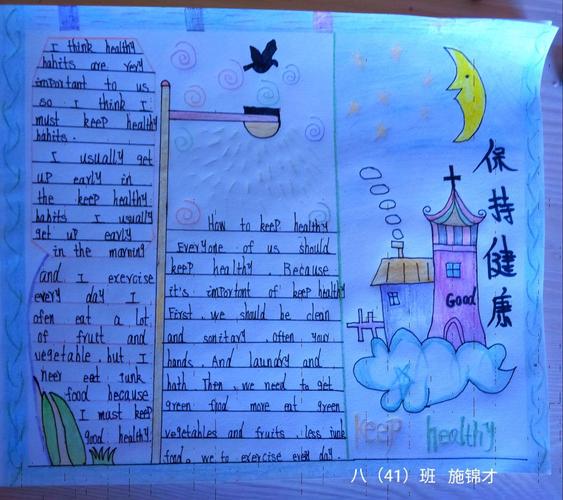 I think healthy
habits are very
important to us
so I think I
must keep healthy
habits.
I usually get
up early in
the keep healthy
habits I usually
get up early
in the morning
and I exercise
every day I
ofen eat a lot
of fruit and
vegetable. but I
neer eat junk
food because
I mast keep
good healthy.
How to keep healthy
Everyone of us should
keep healthy. Because
it's important of keep healthy
First, we should be clenn
and sanitary. often your
hands. And laundry and
bath Then, we need to get
green food more eat green
vegetables and fruits. less junk
food. we to exercise every day.
Good
保持健康
keep healthy
八（41）班 施锦才